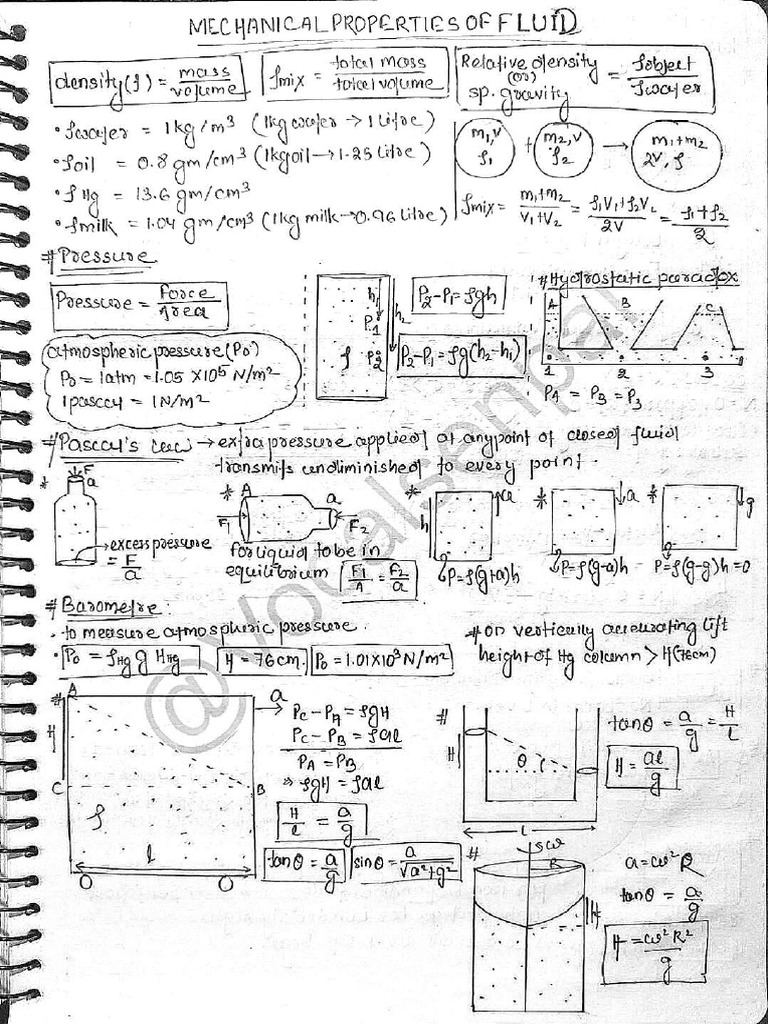 MECHANICAL PROPERTIES OF FLUID
density(ρ) = mass/volume
ρmix = total mass/total volume
Relative density (or) sp. gravity = ρobject/ρwater
• ρwater = 1kg/m³ (1kg water → 1 litre)
• ρoil = 0.8 gm/cm³ (1kg oil → 1.25 litre)
• ρHg = 13.6 gm/cm³
• ρmilk = 1.04 gm/cm³ (1kg milk → 0.96 litre)
m₁,V ρ₁ + m₂,V ρ₂ → m₁+m₂ 2V, ρ
ρmix = m₁+m₂/V₁+V₂ = ρ₁V₁+ρ₂V₂/2V = ρ₁+ρ₂/2
# Pressure
Pressure = Force/Area
atmospheric pressure (P₀)
P₀ = 1atm = 1.05 × 10⁵ N/m²
1 pascal = 1N/m²
h₁ h₂
P₁
ρ P₂
P₂-P₁ = ρgh
P₂-P₁ = ρg(h₂-h₁)
# Hydrostatic paradox
A B C
1 2 3
PA = PB = P₃
# Pascal's law → extra pressure applied at any point of closed fluid
transmits undiminished to every point.
* F a
excess pressure = F/a
* A a
F₁ F₂
for liquid to be in
equilibrium F₁/A = F₂/a
* h a
P=ρ(g+a)h
* a
P=ρ(g-a)h
* g
P=ρ(g-g)h=0
# Barometre:
• to measure atmospheric pressure.
• P₀ = ρHg g HHg H = 76cm. P₀ = 1.01×10³ N/m²
# on vertically accelerating lift
height of Hg column > H(76cm)
# A a
H
C B
ρ
l
PC - PA = ρgH
PC - PB = ρal
PA = PB
⇒ ρgH = ρal
H/l = a/g
tanθ = a/g sinθ = a/√a²+g²
# H θ
L
tanθ = a/g = H/l
H = al/g
# ω
R
H
a = ω²R
tanθ = a/g
H = ω²R²/g
@vocalsenpai